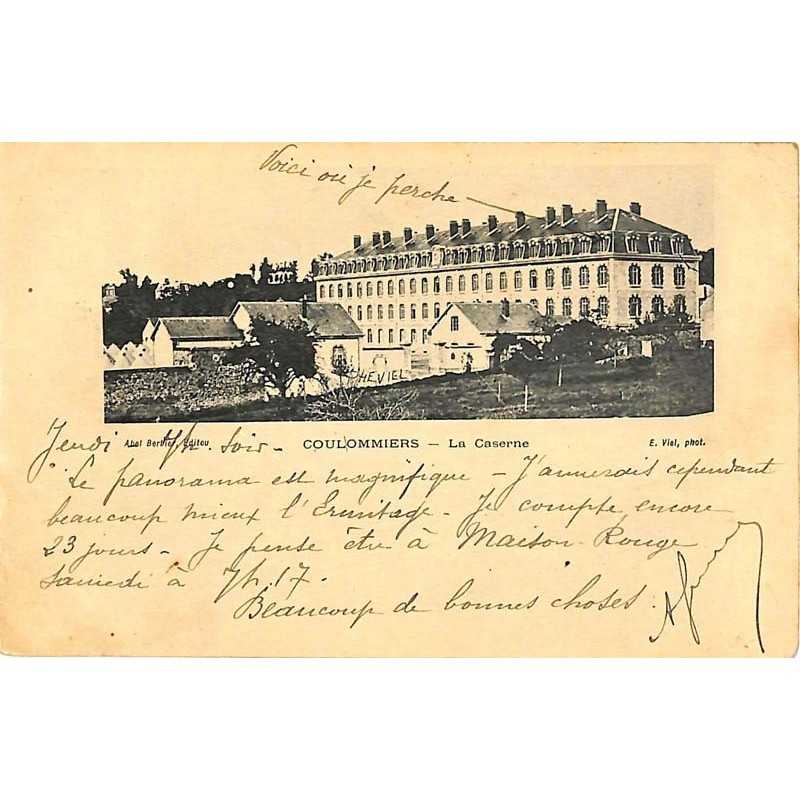 Voici où je perche
CHEVIEL
Abel Berthier, Editeu
COULOMMIERS — La Caserne
E. Viel, phot.
Jeudi 7h. soir -
Le panorama est magnifique - J'aimerais cependant
beaucoup mieux l'Ermitage - Je compte encore
23 jours - Je pense être à Maison-Rouge
Samedi à 7h.17.
Beaucoup de bonnes choses.